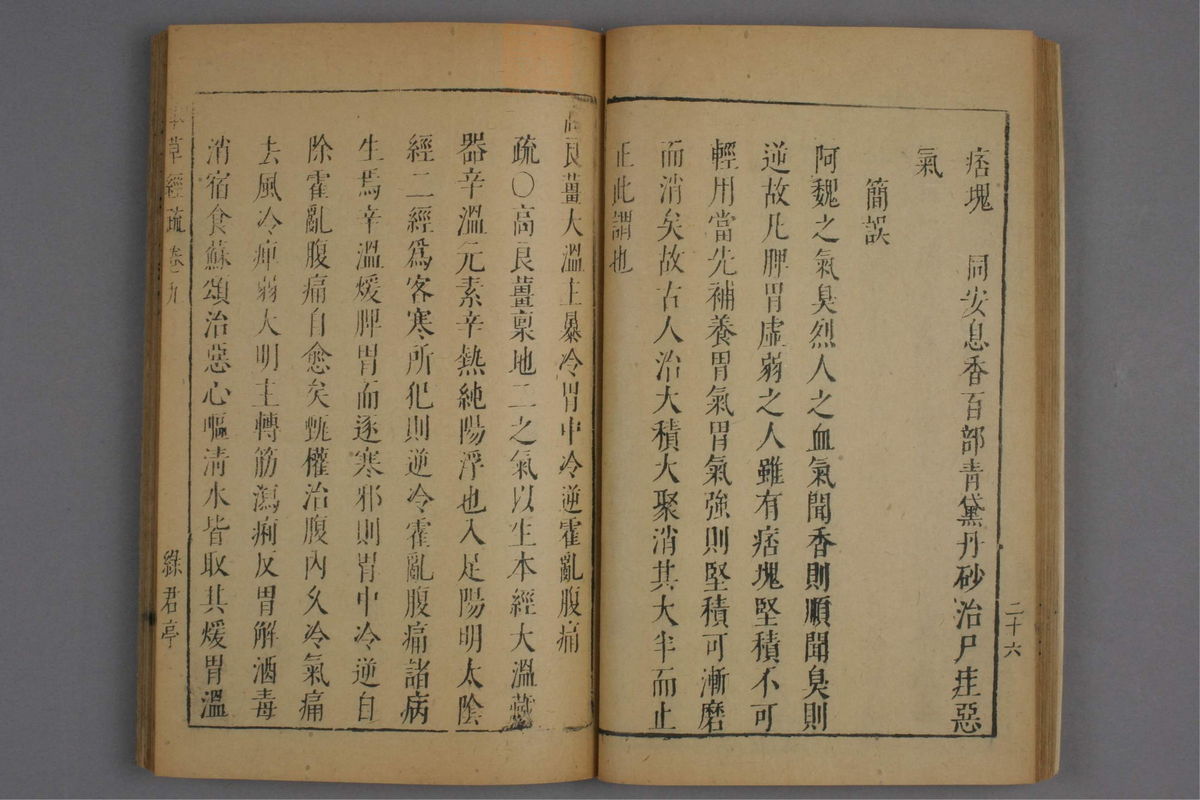 痞塊　同安息香百部青黛丹砂治尸疰惡
氣
簡誤
阿魏之氣臭烈人之血氣聞香則順聞臭則
逆故凡脾胃虛弱之人雖有痞塊堅積不可
輕用當先補養胃氣胃氣強則堅積可漸磨
而消矣故古人治大積大聚消其大半而止
正此謂也
二十六
高良薑大溫主暴冷胃中冷逆霍亂腹痛
疏〇高良薑稟地二之氣以生本經大溫藏
器辛溫元素辛熱純陽浮也入足陽明太陰
經二經爲客寒所犯則逆冷霍亂腹痛諸病
生焉辛溫煖脾胃而逐寒邪則胃中冷逆自
除霍亂腹痛自愈矣甄權治腹內久冷氣痛
去風冷痺弱大明主轉筋瀉痢反胃解酒毒
消宿食蘇頌治惡心嘔清水皆取其煖胃溫
本草經疏卷之九
綠君亭